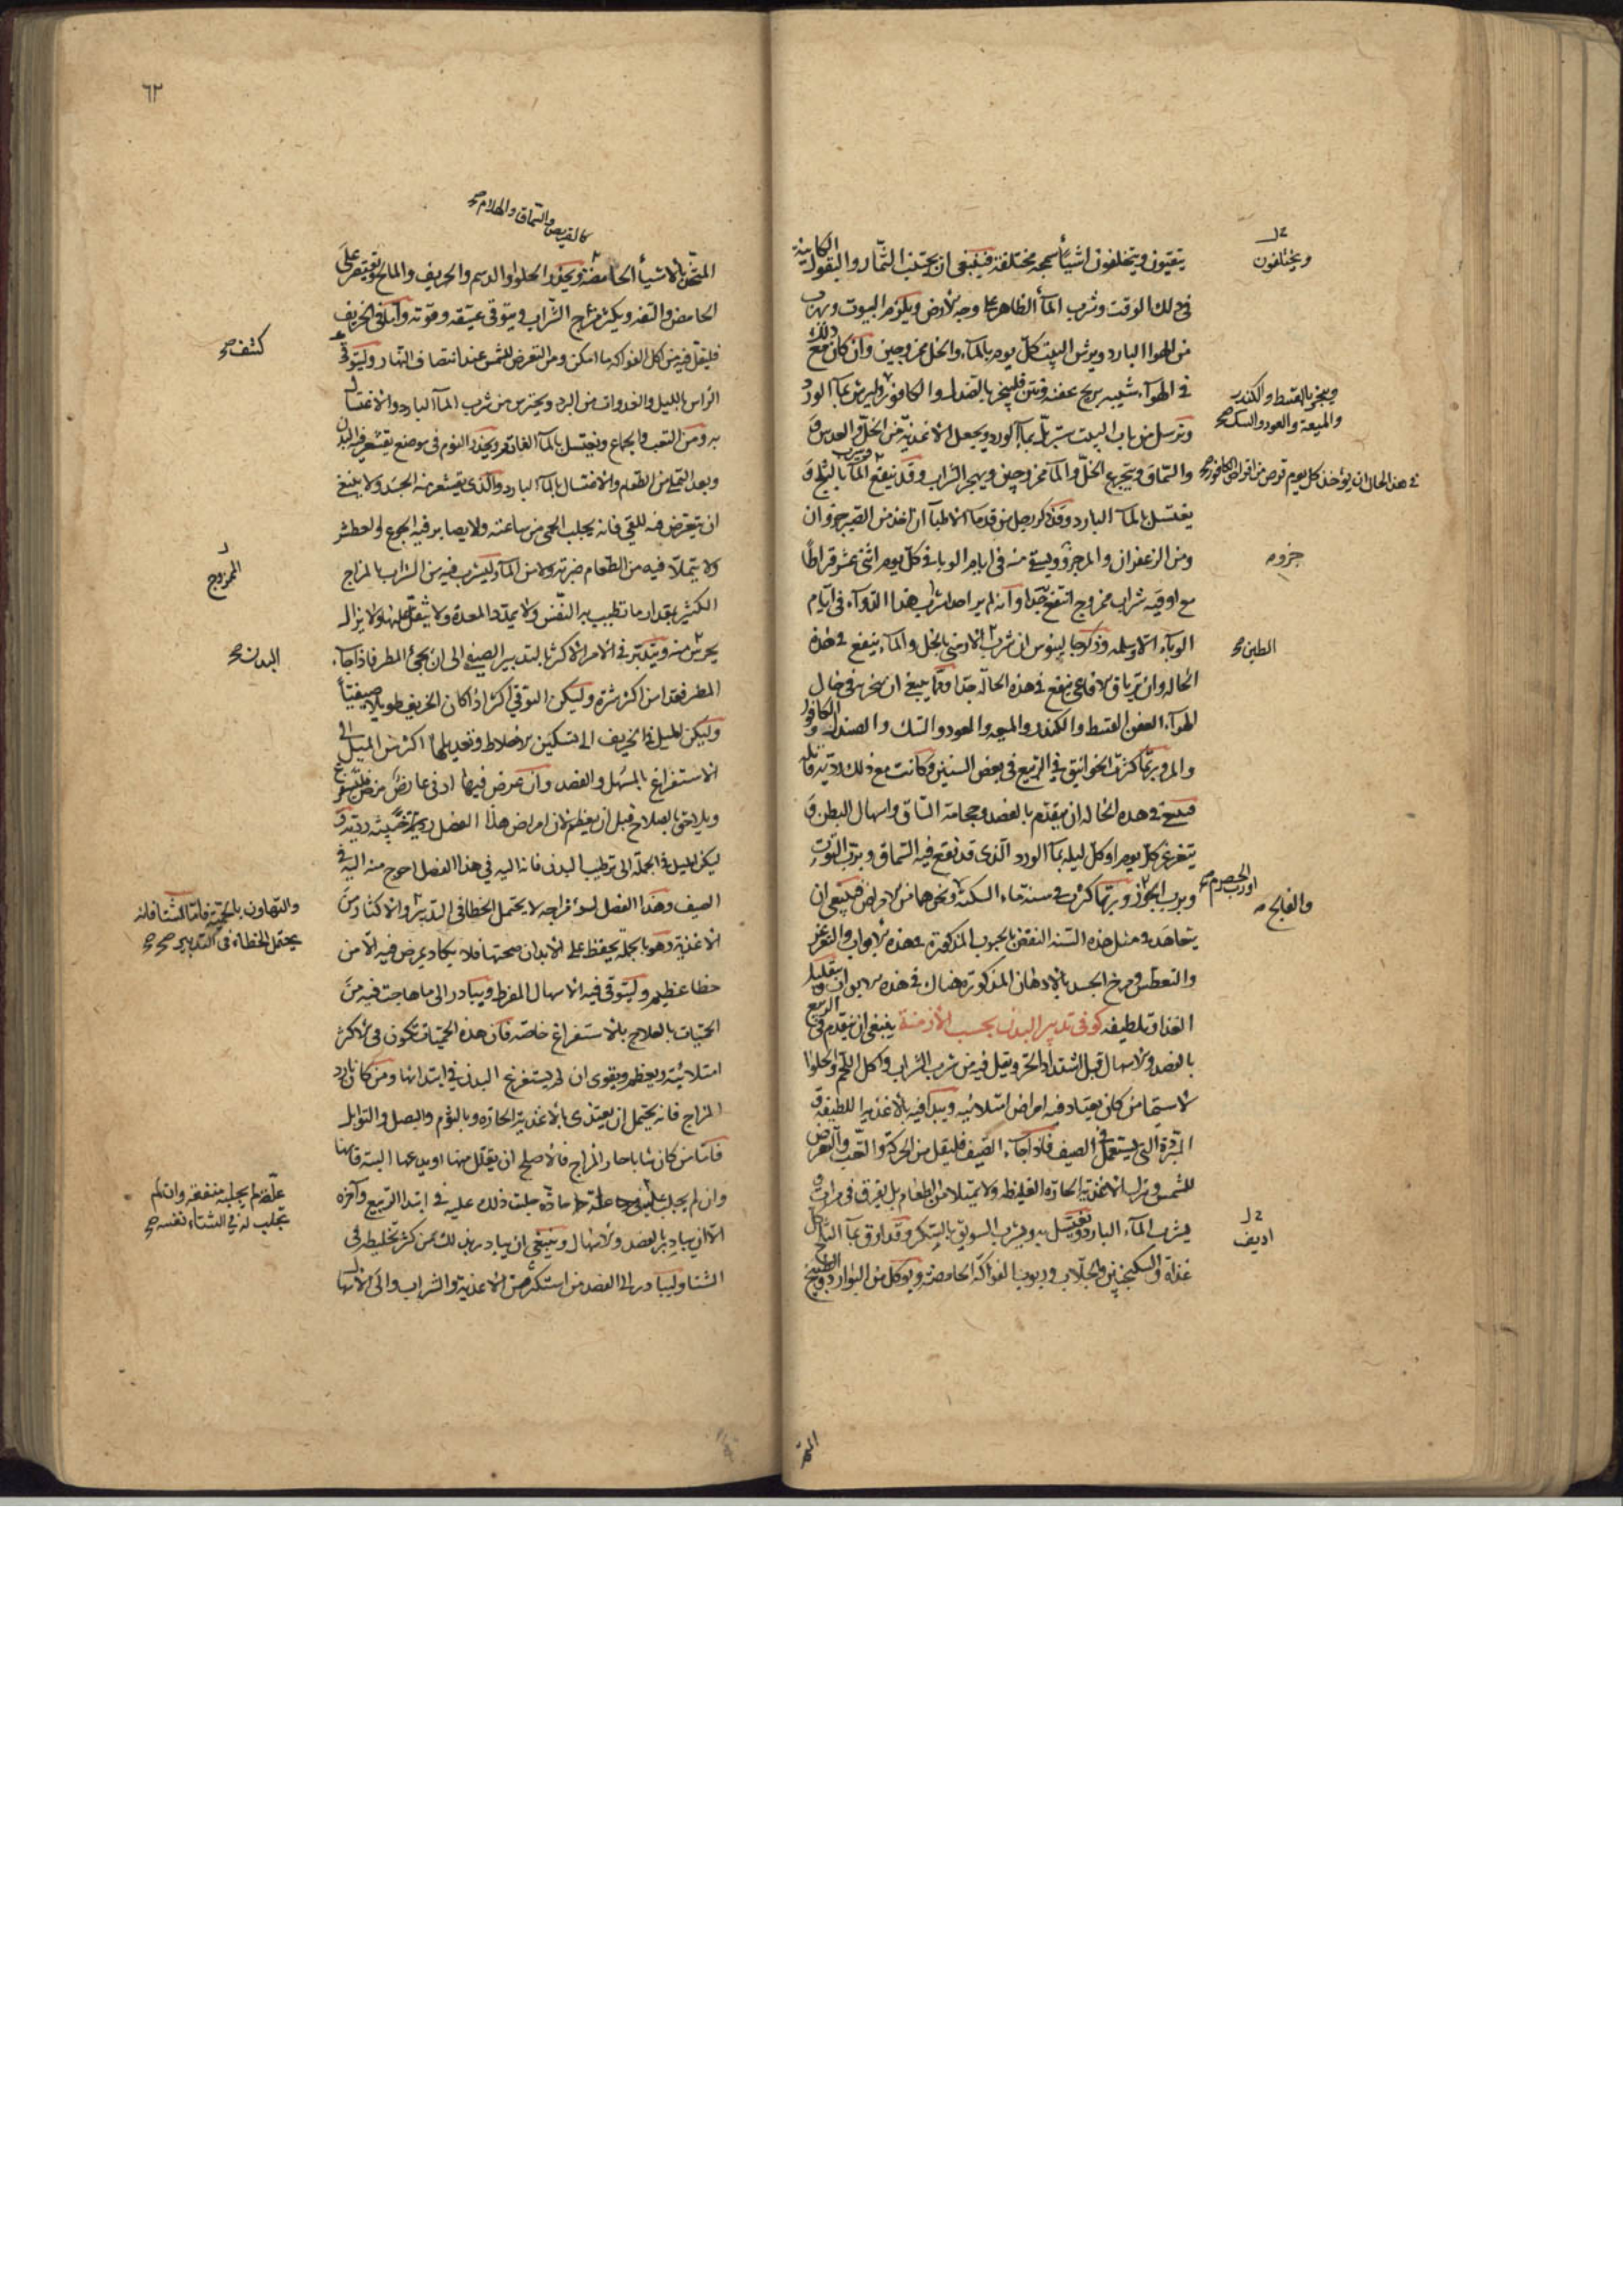 يتقيون ويتخلفون اشيأ سمجه مختلفة فينبغى ان يجتنب الثمار والبقول الكاينة
فى ذلك الوقت وشرب المآ الظاهر على وجه الارض ويلزم البيوت ويهرب
من الهوا البارد ويرش البيت كل يوم بالمآء والخل ممزوجين وان كان مع ذلك
فى الهوآء شبيه بريح عفنة ونتن فليبخر بالصندل والكافور وليرش بمآ الورد
وترسل من باب البيت ستر يبل بمآ الورد ويجعل الاغذية من الخل والعدس و
والسماق ويتجرع الخل والمآ ممزوجين ويهجر الشراب وقد ينفع المآ بالثلج و
يغتسل بالمآ البارد وقد ذكر رجل من قدمآ الاطبآ ان اخذ من الصبر جزوان
ومن الزعفران والمر جزو ويسقى منه فى ايام الوبا فى كل يوم اثنى عشر قراطًا
مع اوقيه شراب ممزوج انتفع به جدا وانه لم ير احدا شرب هذا الدوآء فى ايام
الوبآء الا وسلم وذكر جالينوس ان شرب الارمنى بالخل والمآء ينفع فى هذه
الحاله وان ترياق الافاعى ينفع فى هذه الحاله جدا ومما ينبغى ان يبخر به فى حال
الهوآء العفن القسط والكندر والميعه والعود والسك والصندل والكافور
والمر وربما كثرت الخوانيق فى الربيع فى بعض السنين وكانت مع ذلك ردية قاتله
فينبغى فى هذه الحاله ان يتقدم بالفصد وحجامة الساق واسهال البطن و
يتغرغر كل يوم او كل ليله بمآ الورد الذى قد نقع فيه السماق وبرب التوت
وبرب الجوز وربما كثرت فى سنة ماء السكتة ونحوها من الامراض فينبغى ان
يتعاهد فى مثل هذه السنه النفض بالحبوب المذكورة فى هذه الابواب والتغرغر
والتعطس ومرخ الجسد بالادهان المذكوره هناك فى هذه الابواب وتقليل
الغذا وتلطيفه كو فى تدبير البدن بحسب الازمنة ينبغى ان يتقدم فى الربيع
بالفصد والاسهال قبل اشتداد الحر ويقل فيه من شرب الشراب واكل اللحم والحلوا
لا سيما من كان يعتاد فيه امراض امتلائيه ويبدا فيه بالاغذية اللطيفة و
المبردة التى يستعمل فى الصيف فاذا جآء الصيف فليقل من الحركة والتعب والتعرض
للشمس وترك الاغذية الحارة الغليظه ولا يمتلا من الطعام بل يفرق فى مرات و
يشرب المآء البارد ويغتسل به ويشرب السويق بالسكر وقد ارق بمآ الثلج كل
غداة والسكنجبين والجلاب وربوب الفواكه الحامضة ويوكل من البوارد والطبيخ
ويختلفون
ويبخر بالقسط والكندر
والميعة والعود والسك صح
فى هذا الحال ان يؤخذ كل يوم قرص من اقراص الكافور صح
جزو صح
الطين صح
او رب الحصرم صح
والفالج صح
اديف
المتخذ
٦٢
كالقريص والسماق والهلام صح
المتخذ بالاشيأ الحامضة ويحذر الحلوا والدسم والحريف والمالح ويقتصر على
الحامض والتفه ويكثر مزاج الشراب ويتوقى عتيقه وقوته وآما فى الخريف
فليقل فيه من اكل الفواكه ما امكن ومن التعرض للشمس عند انتصاف النهار وليتوقى
الراس بالليل والغدوات من البرد ويحترس من شرب المآ البارد والاغتسال
به ومن التعب والجماع ويغتسل بالمآ الفاتر ويحذر النوم فى موضع يقشعر فيه البدن
وبعد التملى من الطعام والاغتسال بالمآ البارد والذى يقشعر منه الجسد ولا ينبغى
ان يتعرض فيه للقى فانه يجلب الحمى من ساعته ولا يصابر فيه الجوع والعطش
ولا يتملا فيه من الطعام ضربة ولا من المآء وليشرب فيه من الشراب بالمزاج
الكثير بمقدار ما تطيب به النفس ولا يمدد المعدة ولا يثقل عليها ولا يزال
يحرس منه ويتدبر فى الامر الاكثر بالتدبير الصيفى الى ان يجئ المطر فاذا جآء
المطر فقد امن اكثر شره وليكن التوقى اكثر اذا كان الخريف طويلا صيفيًا
وليكن الميل فى الخريف الى تسكين الاخلاط وتعديلها اكثر من الميل الى
الاستفراغ بالمسهل والفصد وان عرض فيها ادنى عارض مرض فليستفرغ
ويلاحق بالصلاح قبل ان يعظم لان امراض هذا الفصل ردية خبيثة ردية و
ليكن الميل فى الجملة الى ترطيب البدن فانه اليه فى هذا الفصل احوج منه اليه فى
الصيف وهذا الفصل لسوء مزاجه لا يحتمل الخطا فى التدبير والاكثار من
الاغذية وهو بالجملة يحفظ على الابدان صحتها فلا يكاد يمرض فيه الا من
خطا عظيم وليتوقى فيه الاسهال المفرط ويبادر الى ما هاجت فيه من
الحميات بالعلاج بالاستفراغ خاصه فان هذه الحميات تكون فى الاكثر
امتلائية ويعظم ويقوى ان لم يستفرغ البدن فى ابتدائها ومن كان بارد
المزاج فانه يحتمل ان يغتذى بالاغذية الحاره وبالثوم والبصل والتوابل
فاما من كان شابا حار المزاج فالاصلح ان يقلل منها او يدعها البتة فانها
وان لم يجلب عليه علة حادة جلبت ذلك عليه فى ابتدا الربيع وآخره
الا ان يبادر بالفصد والاسهال وينبغى ان يبادر بذلك من كثر تخليطه فى
الشتا وليبادر الى الفصد من استكثر من الاغذية والشراب والى الاسهال
كشف صح
الممزوج
البدن صح
والتهاون بالحمية فاما الشتآ فانه
يحتمل الخطاء فى التدبير صح صح
علة لم يجلبه منفعة وان لم
يجلب له فى الشتاء نفسه صح